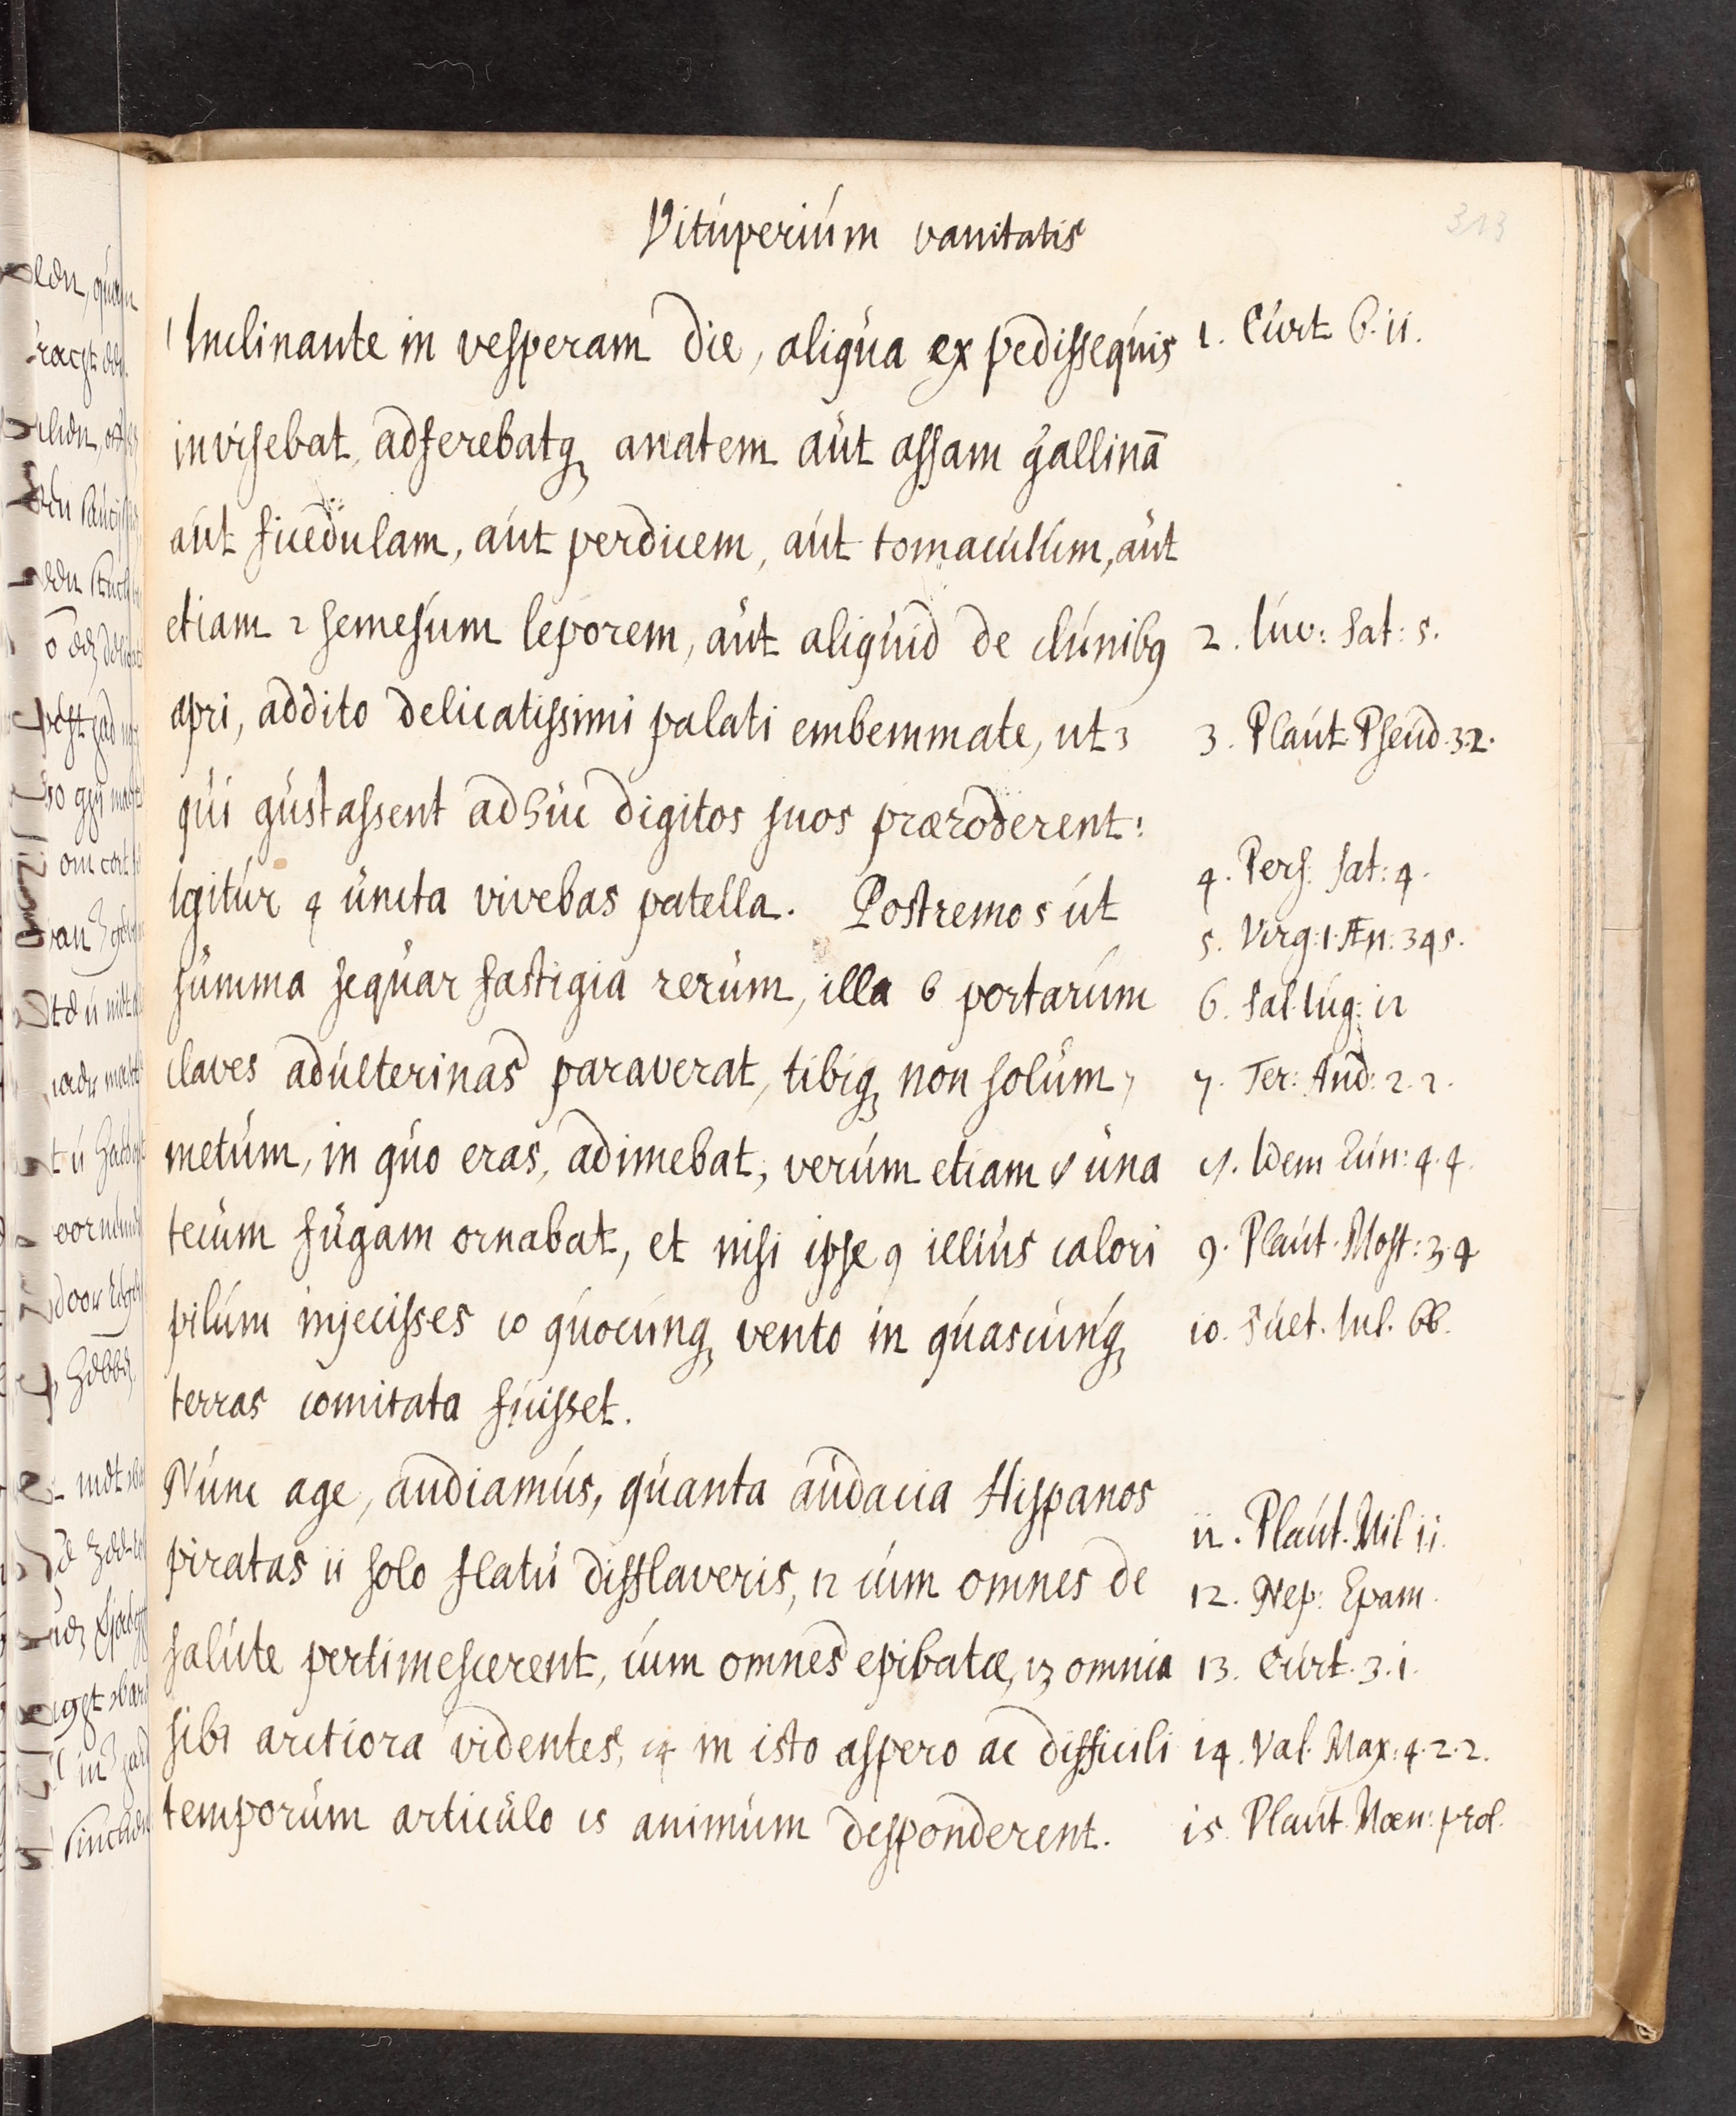 313
Vituperium vanitatis
1 Inclinante in vesperam die, aliqua ex pedissequis
invisebat, adferebatq, anatem aut assam gallinā
aut ficedulam, aut perdicem, aut tomaculum, aut
etiam 2 semesum leporem, aut aliquid de clunibq
apri, addito delicatissimi palati embemmate, ut 3
qui gustassent adhuc digitos suos præroderent:
Igitur 4 uncta vivebas patella. Postremo 5 ut
summa sequar fastigia rerum, illa 6 portarum
claves adulterinas paraverat, tibiq, non solum 7
metum, in quo eras, adimebat, verum etiam 8 una
tecum fugam ornabat, et nisi ipse 9 illius calori
pilum injecisses 10 quocunq, vento in quascunq,
terras comitata fuisset.
Nunc age, audiamus, quanta audacia Hispanos
piratas 11 solo flatu difflaveris, 12 cum omnes de
salute pertimescerent, cum omnes epibatæ, 13 omnia
sibi arctiora videntes, 14 in isto aspero ac difficili
temporum articulo 15 animum desponderent.
1. Curt 6. 11.
2. Iuv: Sat: 5.
3. Plaut. Pseud. 3.2.
4. Pers. Sat: 4.
5. Virg: 1. Æn: 345.
6. Sal. Iug: 12
7. Ter: And: 2. 2.
8. Idem Eun: 4. 4.
9. Plaut. Most: 3. 4
10. Suet. Iul. 66.
11. Plaut. Mil 1 1.
12. Nep: Epam.
13. Curt. 3. 1.
14. Val. Max: 4. 2. 2.
15. Plaut. Mæn: prol.